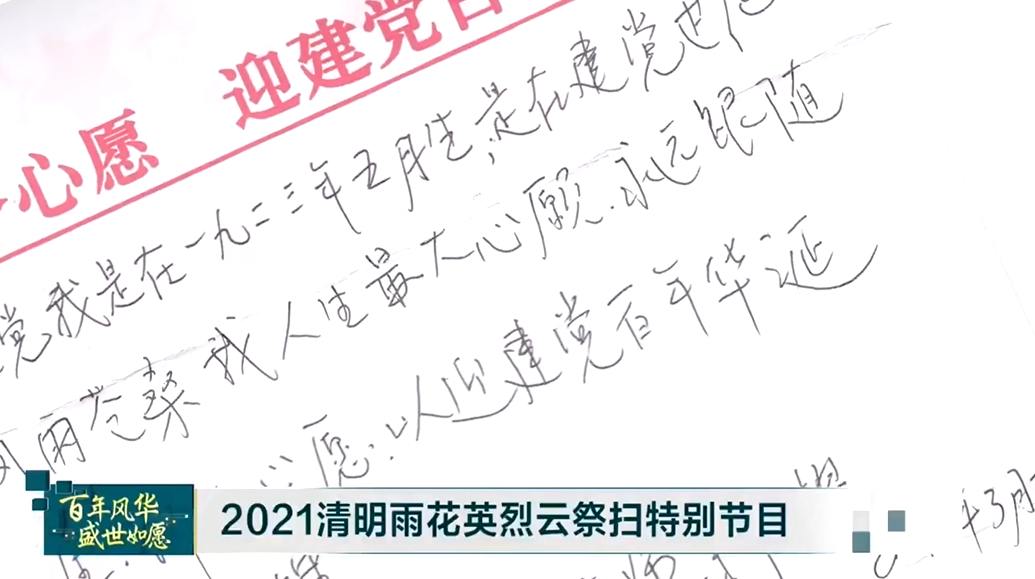 心愿 迎建党百
党我是在一九二三年五月生,是在建党
风雨苍桑我人生最大心愿.永远跟随
心愿.以迎建党百年华诞
百年风华
盛世如愿
2021清明雨花英烈云祭扫特别节目